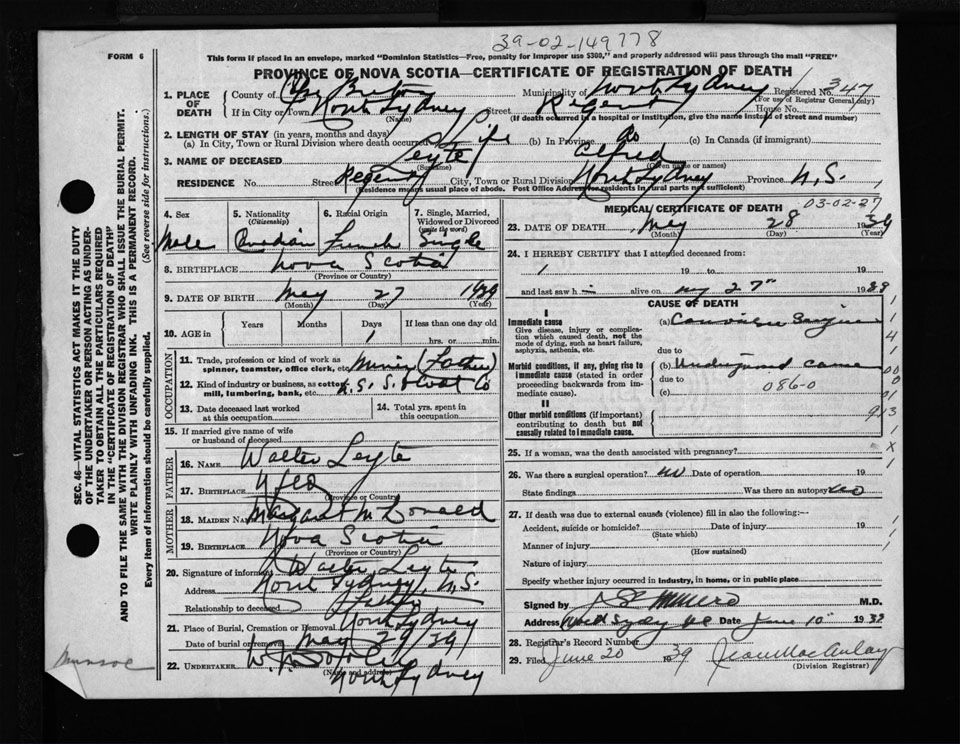 39-02-149778
FORM 6
This form if placed in an envelope, marked "Dominion Statistics—Free, penalty for improper use $300," and properly addressed will pass through the mail "FREE"
PROVINCE OF NOVA SCOTIA—CERTIFICATE OF REGISTRATION OF DEATH
1. PLACE OF DEATH
County of Cape Breton Municipality of North Sydney Registered No. 347
(For use of Registrar General only)
If in City or Town North Sydney Street Regent House No.
(Name) (If death occurred in a hospital or institution, give the name instead of street and number)
2. LENGTH OF STAY (in years, months and days)
(a) In City, Town or Rural Division where death occurred Life (b) In Province do (c) In Canada (if immigrant)
3. NAME OF DECEASED Leyte Alfred
(Surname) (Given name or names)
RESIDENCE No. Street City, Town or Rural Division North Sydney Province N.S.
(Residence means usual place of abode. Post Office Address for residents in rural parts not sufficient)
4. Sex 5. Nationality (Citizenship) 6. Racial Origin 7. Single, Married, Widowed or Divorced (write the word)
Male Canadian French Single
8. BIRTHPLACE Nova Scotia
(Province or Country)
9. DATE OF BIRTH May 27 1939
(Month) (Day) (Year)
10. AGE in Years Months Days If less than one day old
1 hrs. or min.
OCCUPATION
11. Trade, profession or kind of work as spinner, teamster, office clerk, etc. Miner (Father)
12. Kind of industry or business, as cotton mill, lumbering, bank, etc. N.S.S. & Coal Co
13. Date deceased last worked at this occupation 14. Total yrs. spent in this occupation
15. If married give name of wife or husband of deceased
FATHER
16. NAME Walter Leyte
17. BIRTHPLACE Nfld
(Province or Country)
MOTHER
18. MAIDEN NAME Margaret McDonald
19. BIRTHPLACE Nova Scotia
(Province or Country)
20. Signature of informant Walter Leyte
Address North Sydney, N.S.
Relationship to deceased Father
21. Place of Burial, Cremation or Removal North Sydney
Date of burial or removal May 29/39
22. UNDERTAKER
(Name and address) North Sydney
MEDICAL CERTIFICATE OF DEATH 03-02-27
23. DATE OF DEATH May 28 1939
(Month) (Day) (Year)
24. I HEREBY CERTIFY that I attended deceased from:
19 to 19
and last saw h alive on my 27" 1939
CAUSE OF DEATH
I
Immediate cause (a)
Give disease, injury or complication which caused death, not the mode of dying, such as heart failure, asphyxia, asthenia, etc. due to
Morbid conditions, if any, giving rise to immediate cause (stated in order proceeding backwards from immediate cause). (b) cause
due to
086-0
(c)
II
Other morbid conditions (if important) contributing to death but not causally related to immediate cause. 913
25. If a woman, was the death associated with pregnancy?
26. Was there a surgical operation? no Date of operation 19
State findings Was there an autopsy? no
27. If death was due to external causes (violence) fill in also the following:—
Accident, suicide or homicide? Date of injury 19
(State which)
Manner of injury
(How sustained)
Nature of injury
Specify whether injury occurred in industry, in home, or in public place
Signed by M.D.
Address Date June 10 1939
28. Registrar's Record Number
29. Filed June 20 1939 Jean MacAulay
(Division Registrar)
SEC. 46—VITAL STATISTICS ACT MAKES IT THE DUTY
OF THE UNDERTAKER OR PERSON ACTING AS UNDERTAKER
TO OBTAIN ALL THE PARTICULARS REQUIRED
IN THE "CERTIFICATE OF REGISTRATION OF DEATH"
AND TO FILE THE SAME WITH THE DIVISION REGISTRAR WHO SHALL ISSUE THE BURIAL PERMIT.
WRITE PLAINLY WITH UNFADING INK. THIS IS A PERMANENT RECORD.
Every item of information should be carefully supplied. (See reverse side for instructions.)